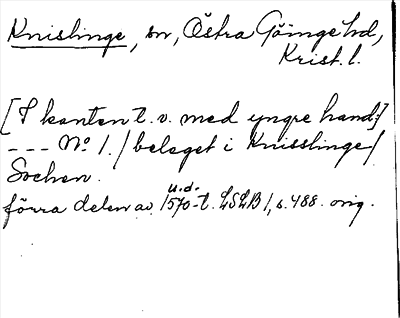 Knislinge, sn, Östra Göinge hd,
Krist. l.
[I kanten t. v. med yngre hand:]
--- No 1. / belaget i Knisslinge /
Sochen.
u. d.
förra delen av 1570-t. LSLB 1, s. 488. orig.